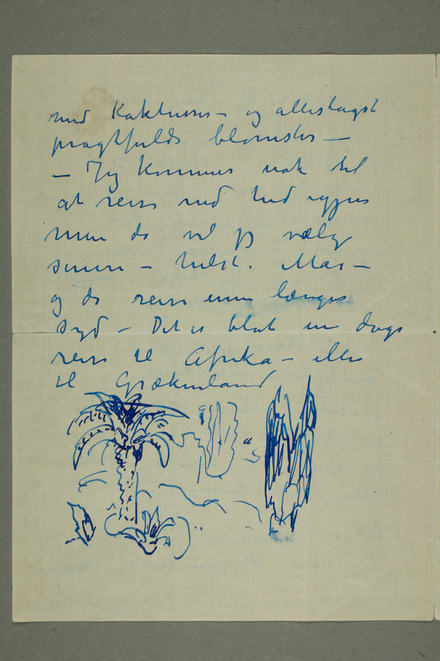 med Kaktusser – og alleslags
pragtfulde blomster –
– Jeg kommer nok til
at reise ned hid igjen
men da vil jeg vælge
senere – helst. Mai –
og da reise ennu længer
syd – Det er blot en dags
reise til Afrika – eller
til Grækenland